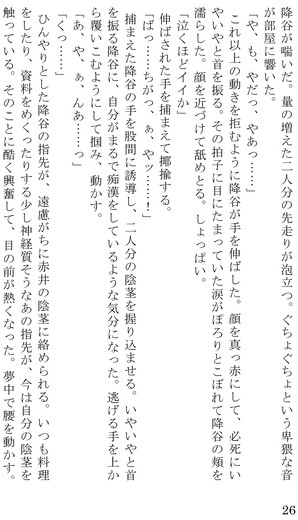 降谷が喘いだ。量の増えた二人分の先走りが泡立つ。ぐちょぐちょという卑猥な音
が部屋に響いた。
「や、も、やだっ、やあっ……」
これ以上の動きを拒むように降谷が手を伸ばした。顔を真っ赤にして、必死にい
やいやと首を振る。その拍子に目にたまっていた涙がぽろりとこぼれて降谷の頬を
濡らした。顔を近づけて舐めとる。しょっぱい。
「泣くほどイイか」
伸ばされた手を捕まえて揶揄する。
「ばっ……ちがっ、ぁ、やッ……！」
捕まえた降谷の手を股間に誘導し、二人分の陰茎を握り込ませる。いやいやと首
を振る降谷に、自分がまるで痴漢をしているような気分になった。逃げる手を上か
ら覆いこむようにして掴み、動かす。
「あ、や、ぁ、んあ……っ」
「くっ……」
ひんやりとした降谷の指先が、遠慮がちに赤井の陰茎に絡められる。いつも料理
をしたり、資料をめくったりする少し神経質そうなあの指先が、今は自分の陰茎を
触っている。そのことに酷く興奮して、目の前が熱くなった。夢中で腰を動かす。
26